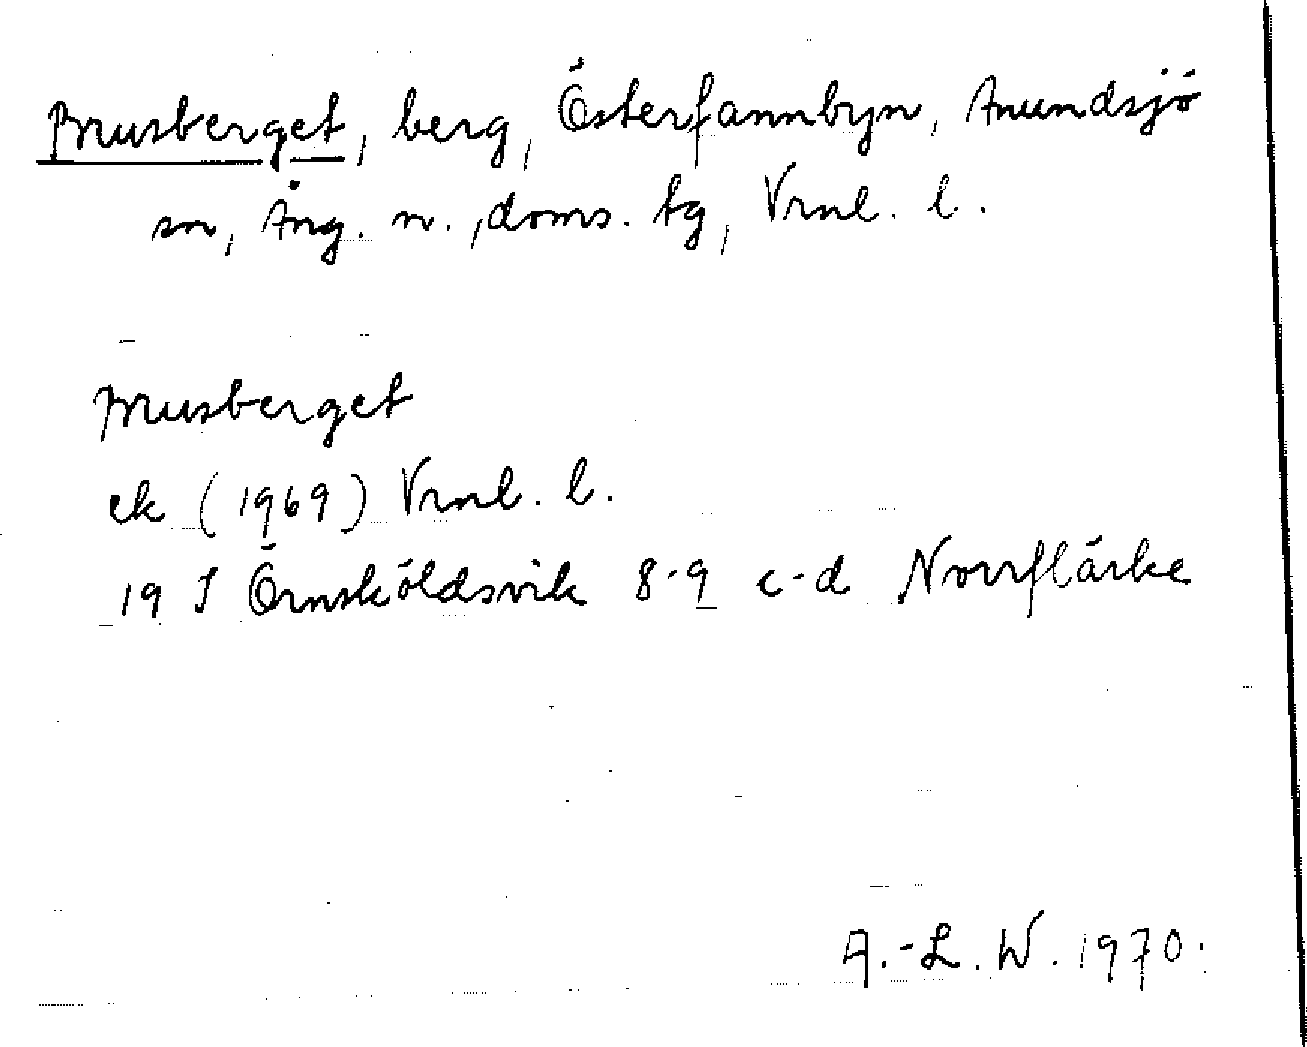 Brusberget, berg, Österfannbyn, Anundsjö
sn, Ång. n., doms. tg, Vrnl. l.
Brusberget
ek (1969) Vrnl. l.
19 J Örnsköldsvik 8-9 c-d Norrflärke
A.-L. W. 1970.